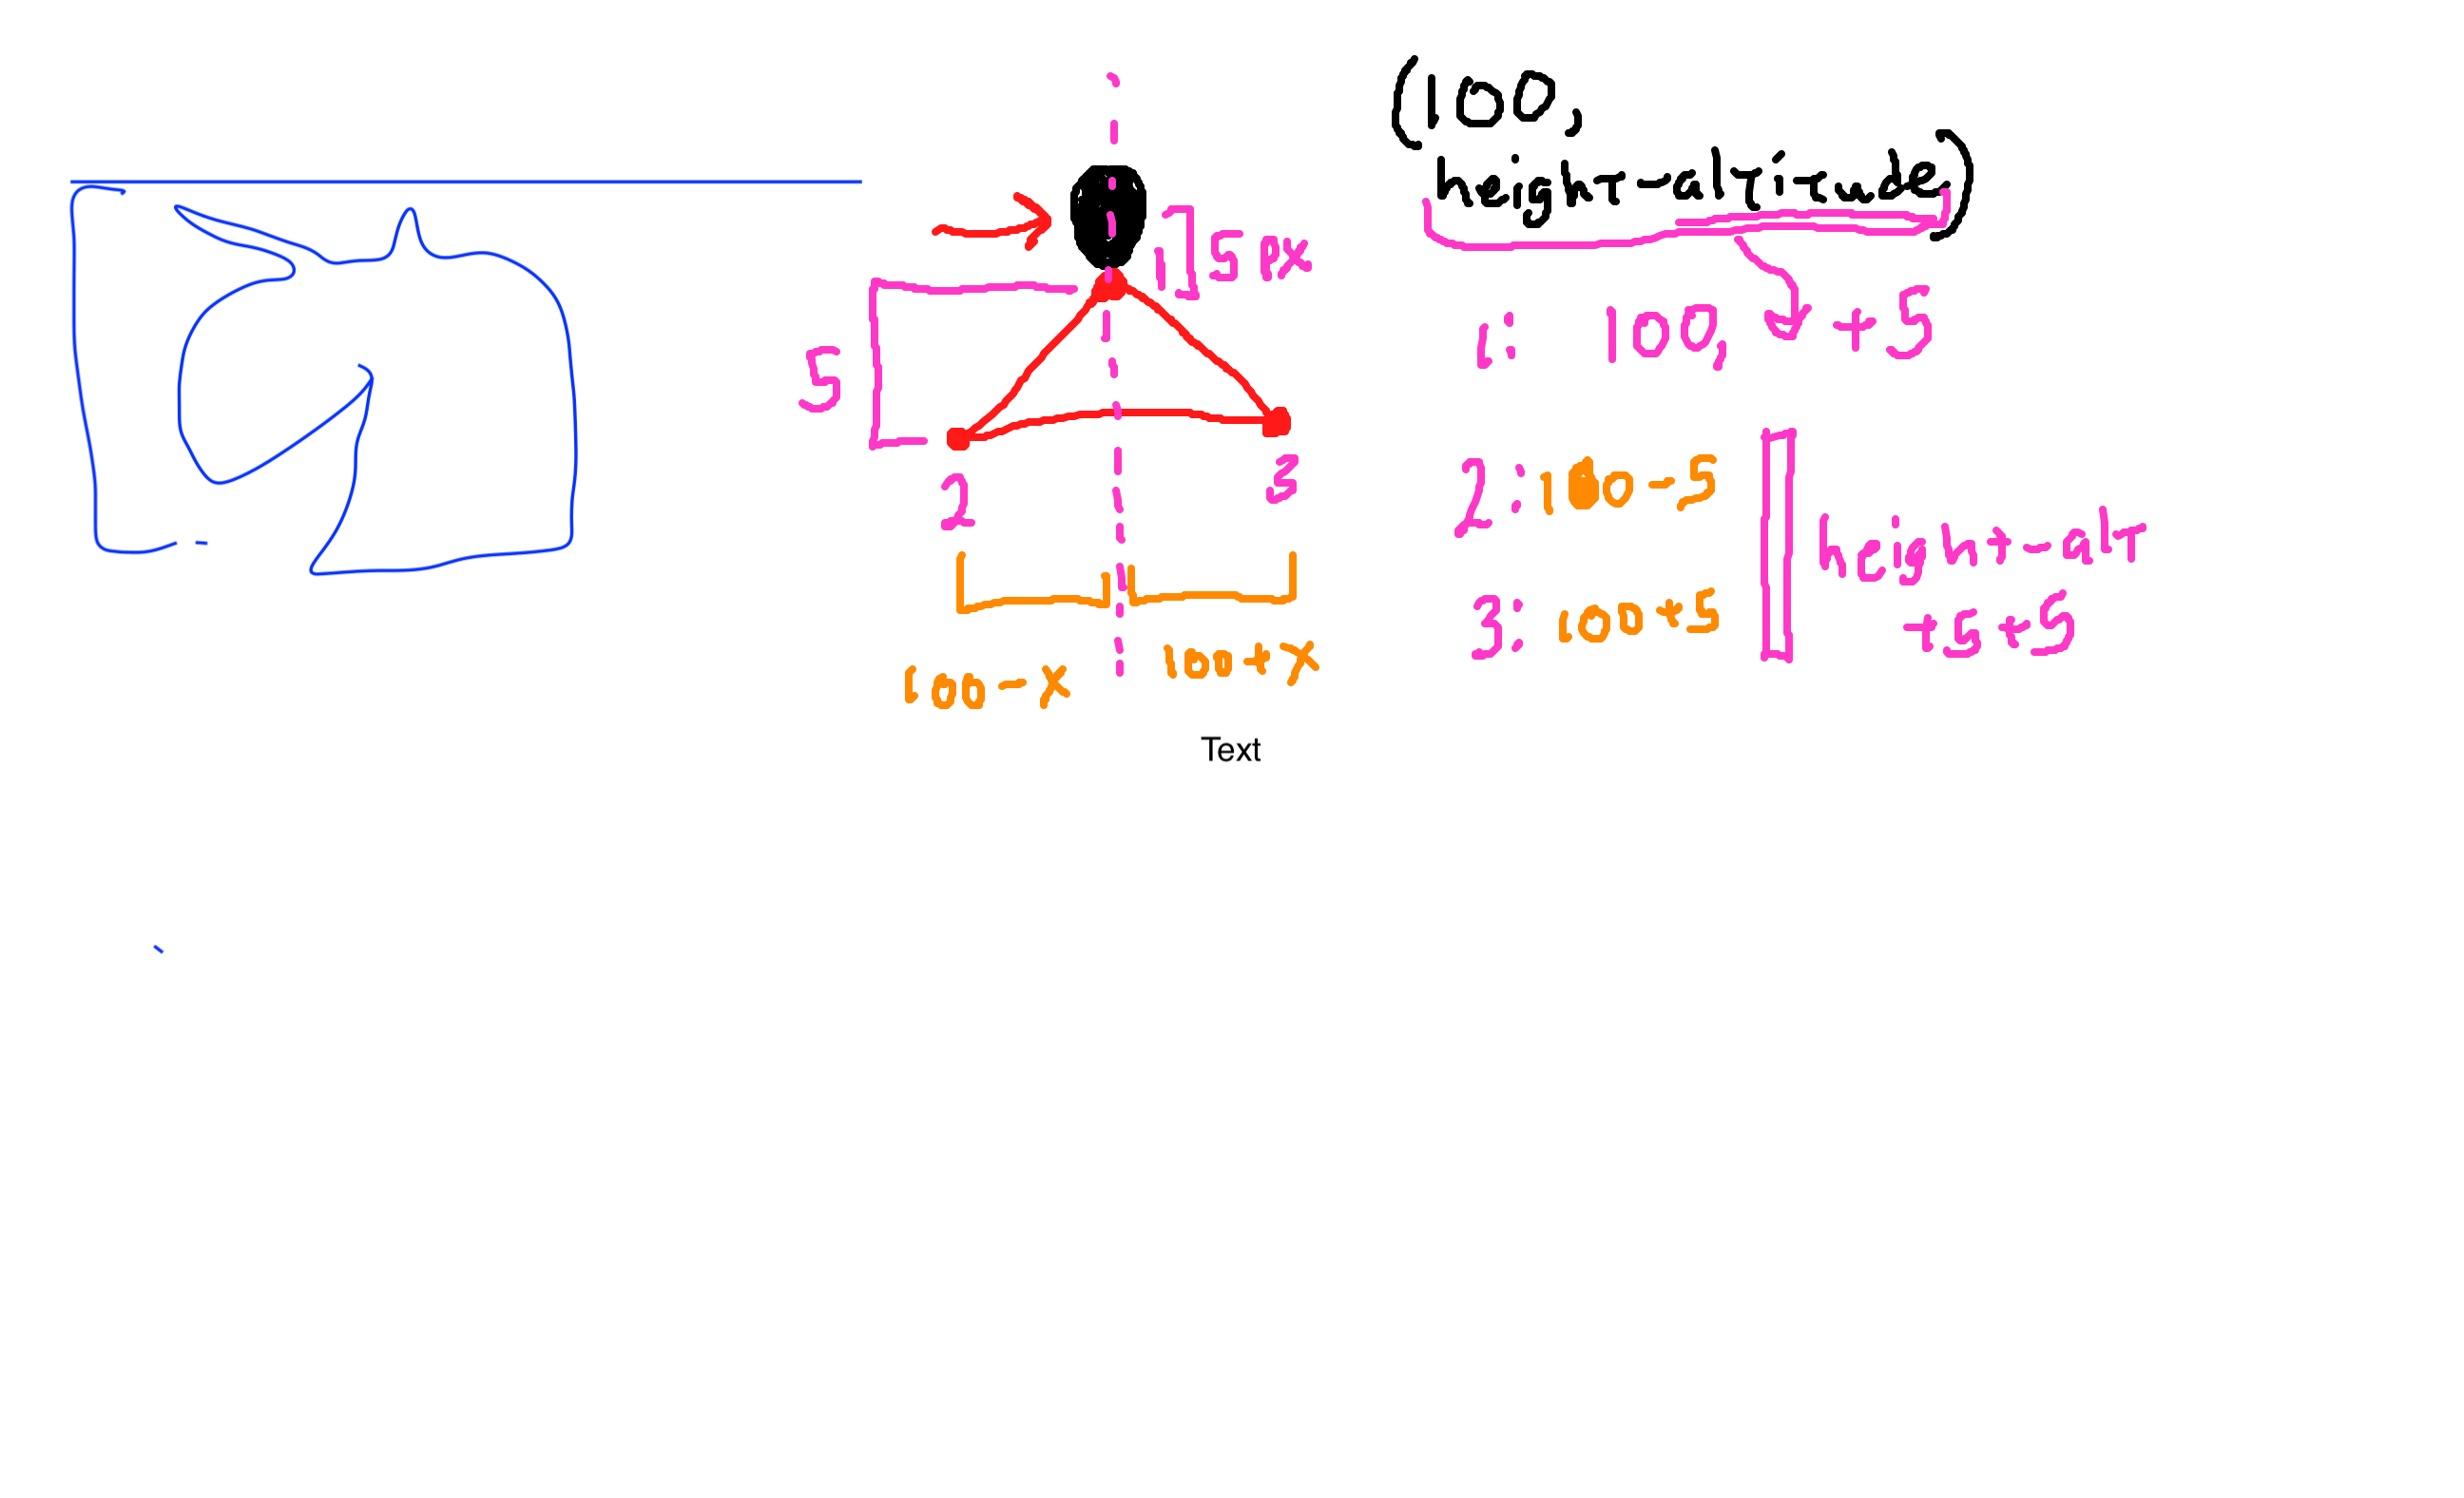 (100,
height-altitude)
15px
5
1: 100, +5
2
3
2: 100-5
height-alt
+5+5
3: 100+5
100-x
100+x
Text